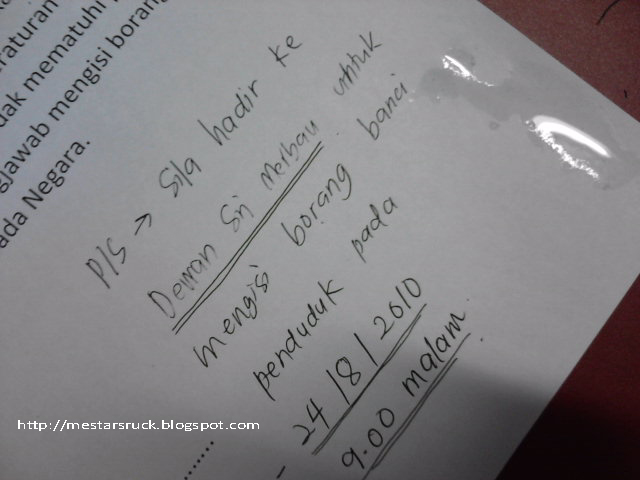 raturan
dak mematuhi
gjawab mengisi borang
ada Negara.
P/S → Sila hadir ke
Dewan Sri Merbau untuk
mengisi borang banci
penduduk pada
- 24/8/2010
9.00 malam.
http://mestarsruck.blogspot.com